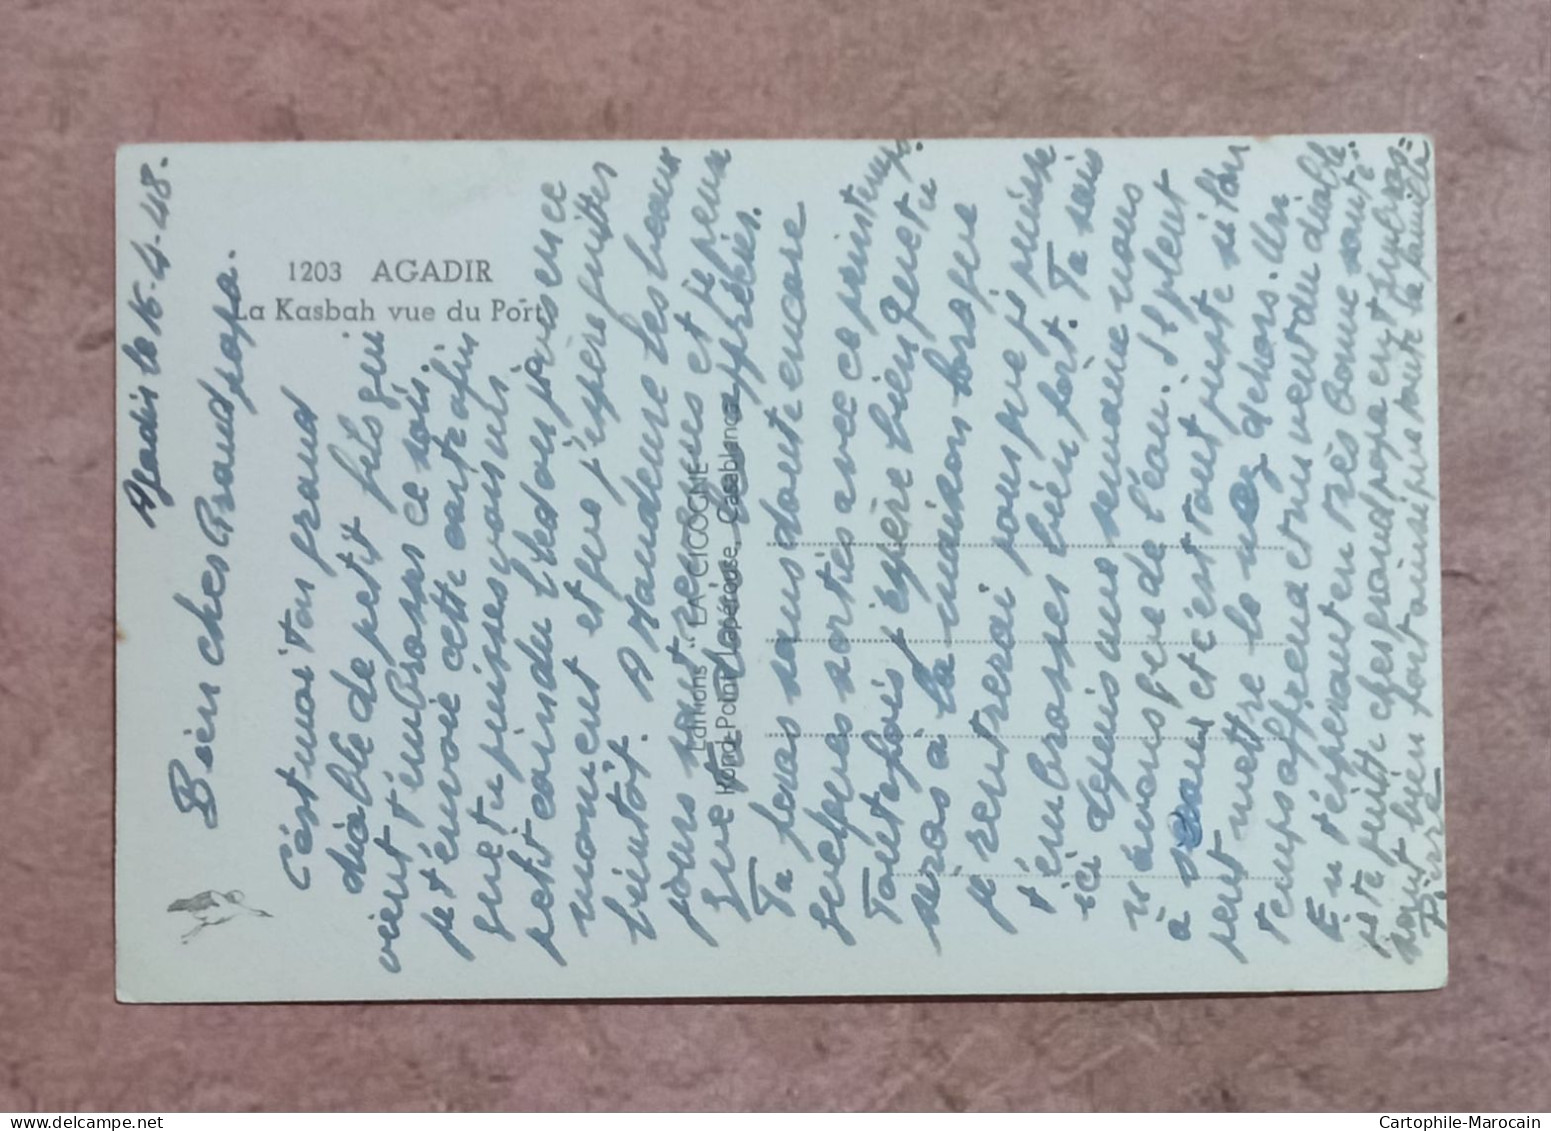 1203 AGADIR
La Kasbah vue du Port
Editions "LA CICOGNE"
Rond-Point Lapérouse, Casablanca
Agadir le 16-4-48.
Bien cher Grand papa.
C'est moi ton grand
diable de petit fils qui
vient t'embrasser ce soir.
je t'envoie cette carte afin
que tu puisses voir un
petit coin du bled où je suis en ce
moment et que j'espère quitter
bientôt. A les beaux
jours sont revenus et je pense
que tu dois les apprécier.
Tu feras sans doute encore
quelques sorties avec ce printemps.
Toutefois j'espère bien que tu
seras à la maison lorsque
je rentrerai pour que je puisse
t'embrasser bien fort. Tu sais
ici depuis une semaine nous
n'avons que de l'eau. Il pleut
à seaux et c'est tout juste si l'on
peut mettre le nez dehors. Un
temps affreux et un vent du diable.
En t'espérant en très bonne santé
je te quitte cher grand papa en t'embras-
sant bien fort ainsi que toute la famille
Pierre
Cartophile-Marocain
www.delcampe.net